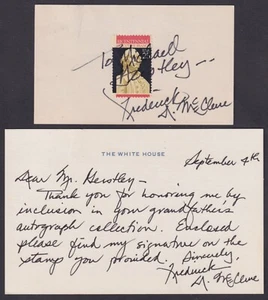 To Michael
Hershey —
Frederick
D. McClure
THE WHITE HOUSE
September 4th
Dear Mr. Hershey —
Thank you for honoring me by
inclusion in your grandfather's
autograph collection. Enclosed
please find my signature on the
stamps you provided. Sincerely,
Frederick
D. McClure